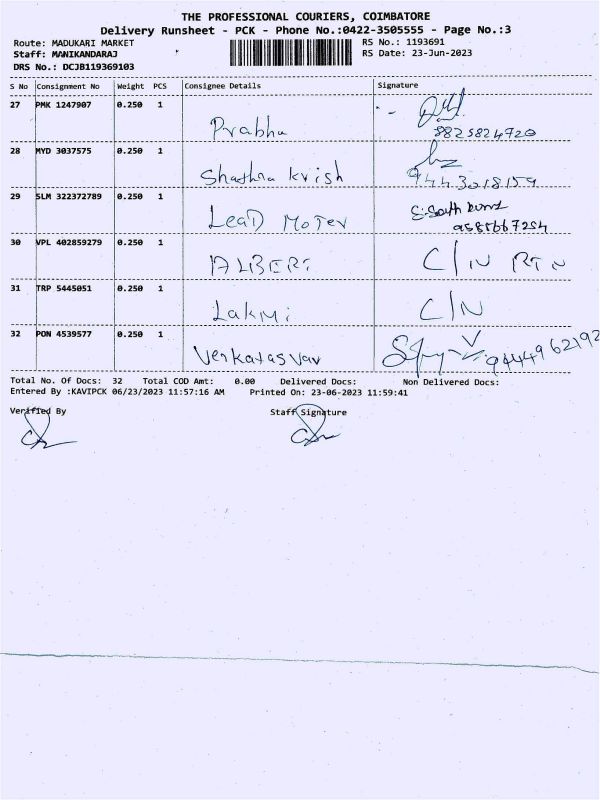 THE PROFESSIONAL COURIERS, COIMBATORE
Delivery Runsheet - PCK - Phone No.:0422-3505555 - Page No.:3
Route: MADUKARI MARKET RS No.: 1193691
Staff: MANIKANDARAJ RS Date: 23-Jun-2023
DRS No.: DCJB119369103
S No Consignment No Weight PCS Consignee Details Signature
27 PMK 1247907 0.250 1
Prabhu
8825824720
28 MYD 3037575 0.250 1
Krish
9443018159
29 SLM 322372789 0.250 1
LeaD MoTer
30 VPL 402859279 0.250 1
ALBERT C/N RTN
31 TRP 5445051 0.250 1
Lakmi C/N
32 PON 4539577 0.250 1
9444962192
Total No. Of Docs: 32 Total COD Amt: 0.00 Delivered Docs: Non Delivered Docs:
Entered By :KAVIPCK 06/23/2023 11:57:16 AM Printed On: 23-06-2023 11:59:41
Verified By Staff Signature